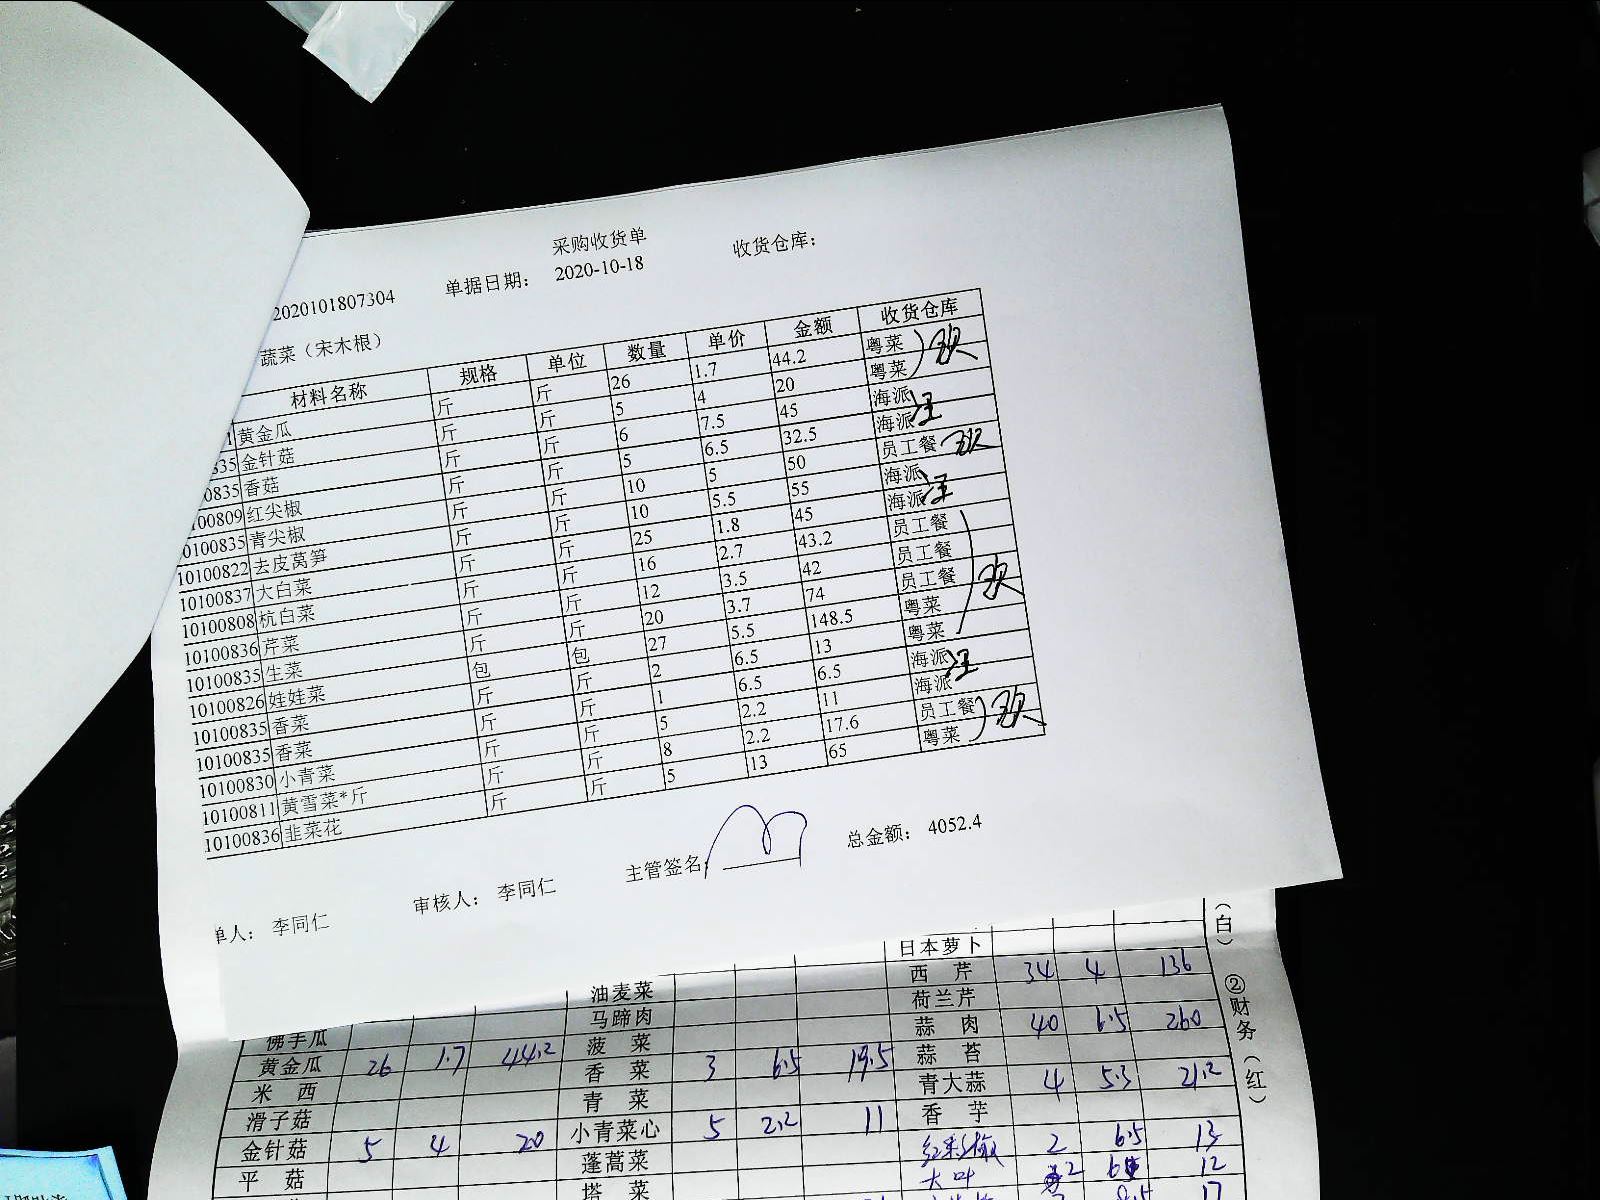 采购收货单
2020101807304 单据日期： 2020-10-18 收货仓库：
蔬菜（宋木根）
材料名称 规格 单位 数量 单价 金额 收货仓库
1 黄金瓜 斤 斤 26 1.7 44.2 粤菜
835 金针菇 斤 斤 5 4 20 粤菜
0835 香菇 斤 斤 6 7.5 45 海派
100809 红尖椒 斤 斤 5 6.5 32.5 海派
0100835 青尖椒 斤 斤 10 5 50 员工餐
10100822 去皮莴笋 斤 斤 10 5.5 55 海派
10100837 大白菜 斤 斤 25 1.8 45 海派
10100808 杭白菜 斤 斤 16 2.7 43.2 员工餐
10100836 芹菜 斤 斤 12 3.5 42 员工餐
10100835 生菜 斤 斤 20 3.7 74 员工餐
10100826 娃娃菜 包 包 27 5.5 148.5 粤菜
10100835 香菜 斤 斤 2 6.5 13 粤菜
10100835 香菜 斤 斤 1 6.5 6.5 海派
10100830 小青菜 斤 斤 5 2.2 11 海派
10100811 黄雪菜*斤 斤 斤 8 2.2 17.6 员工餐
10100836 韭菜花 斤 斤 5 13 65 粤菜
单人： 李同仁 审核人： 李同仁 主管签名： 总金额： 4052.4
日本萝卜
油麦菜 西芹 34 4 136
马蹄肉 荷兰芹
佛手瓜 菠菜 蒜肉 40 6.5 260
黄金瓜 26 1.7 44.2 香菜 3 6.5 19.5 蒜苔
米西 青菜 青大蒜 4 5.3 21.2
滑子菇 小青菜心 5 2.2 11 香芋
金针菇 5 4 20 蓬蒿菜 2 6.5 13
平菇 塔菜 大叶 2 12
17
（白）
②财务（红）